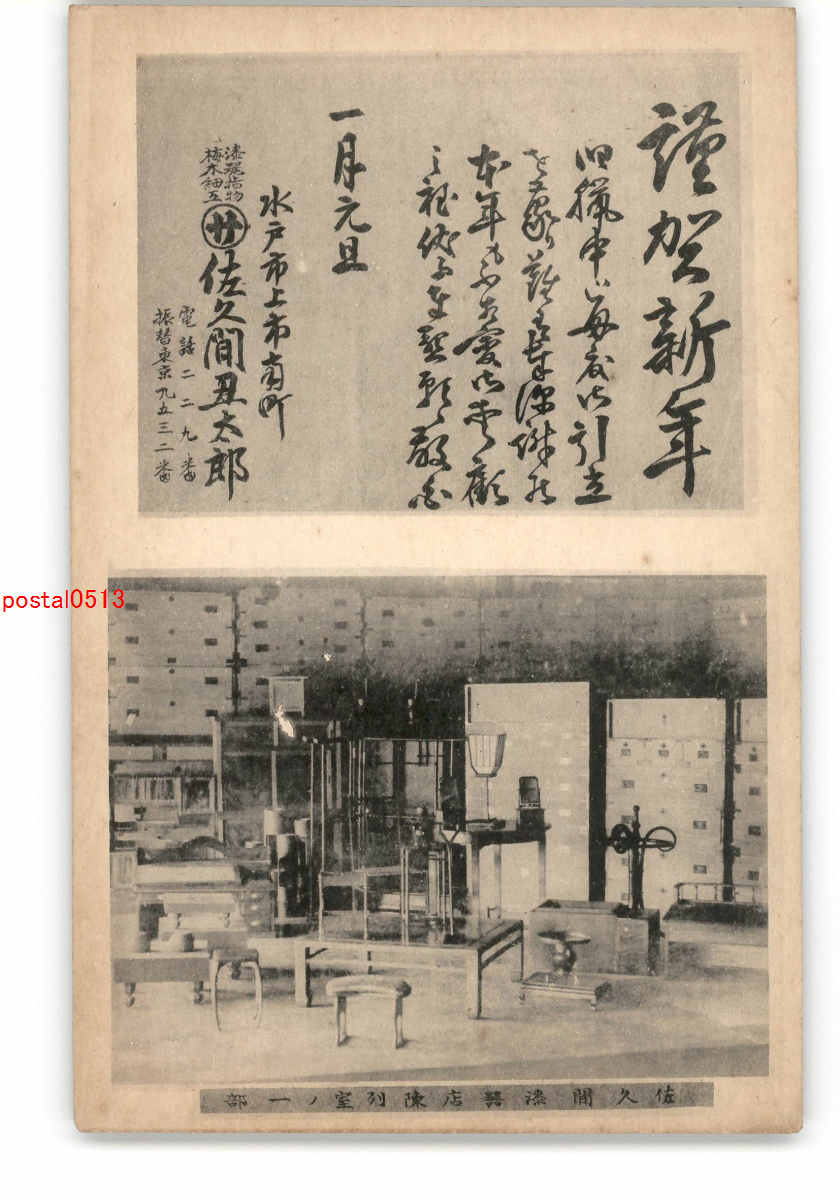 謹賀新年
旧臘中は毎度御引立
を蒙り難有奉深謝候
本年も不相愛御愛顧
之程伏而奉懇願候 敬白
一月元旦
水戸市上市南町
漆器指物
梅木細工
佐久間丑太郎
電話二二九番
振替東京九五三二番
postal0513
佐久間漆器店陳列室ノ一部